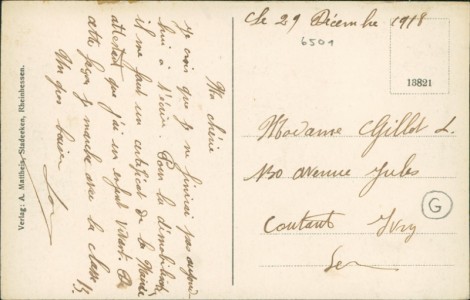 Le 29 Décembre 1918
6501
13821
Ma chérie
Je crois que je ne finirai pas aujourd
hui à t'écrire. Pour la démobilisation
il me faut un certificat de la Mairie
attestant que j'ai un enfant vivant. De
cette façon je marche avec la classe
Un gros baiser
Madame Gillot L.
130 avenue Jules
Coutant Ivry
Sen
G
Verlag: A. Mattheis, Stadecken, Rheinhessen.